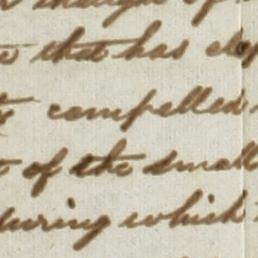 thought of
that has elap
compelled
of the small
during which